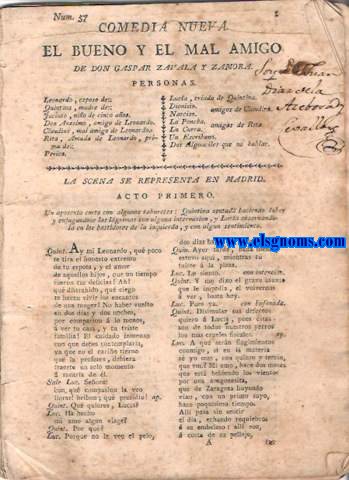 Num. 57
1
COMEDIA NUEVA.
EL BUENO Y EL MAL AMIGO
DE DON GASPAR ZAVALA Y ZAMORA.
PERSONAS.
Leonardo, esposo de:
Quintina, madre de:
Jacinto, niño de cinco años.
Don Anselmo, amigo de Leonardo.
Claudini, mal amigo de Leonardo.
Rita, Amada de Leonardo, pri-
ma de:
Perico.
Lucía, criada de Quintina.
Dionisio,
Narciso, amigos de Claudini.
La Poncha,
La Curra, amigas de Rita.
Un Escribano.
Dos Alguaciles que no hablan.
Soy de Juan
LA SCENA SE REPRESENTA EN MADRID.
ACTO PRIMERO.
Un aposento corto con algunos taburetes: Quintina sentada haciendo labor
y enjugandose las lágrimas con alguna intermision, y Lucía observando-
la en los bastidores de la izquierda, y con algun sentimiento.
Quint. Ay mi Leonardo, qué poco
te tira el honesto extremo
de tu esposa, y el amor
de aquellos hijos, con un tiempo
fueron tus delicias! Ah!
qué distraido, qué ciego
te hacen vivir los encantos
de una muger! No haber vuelto
en dos dias y dos noches,
por compasion á lo menos,
á ver tu casa, y tu triste
familia! El cuidado inmenso
con que debes contemplarla,
ya que no el cariño tierno
que la profesas, debiera
traerte un solo momento
á mirarla de él.
Sale Luc. Señora!
con qué compasion la veo
llorar! bribon; qué presidio! ap.
Quint. Qué quieres, Lucía?
Luc. Ha hecho
mi amo algun viage?
Quint. Por qué?
Luc. Porque no le veo el pelo,
dos dias h
Quin. Ayer tarde,
estuvo aquí, mientras tu
fuiste á la plaza.
Luc. Lo siento. con intencion.
Quint. Y me dixo el grave asunto
que le impedia, el volvernos
á ver, hasta hoy.
Luc. Puro ya. con sofionada.
Quint. Disimular sus defectos
quiero á Lucía, pues estas
son de todos nuestros yerros
los mas crueles fiscales. ap.
Luc. A qué serán fingimientos
conmigo, si en la materia
sé yo mas, que quinto y tercio,
que vm.? Mi amo, hace dos meses
que está bebiendo los vientos
por una aragonesita,
que de Zaragoza huyendo
vino, con un primo suyo,
hace poquisimo tiempo.
Allí pasa sin sentir
el dia, echando requiebros
á su embeleso: allí ron,
á costa de su pellejo,
A
www.elsgnoms.com